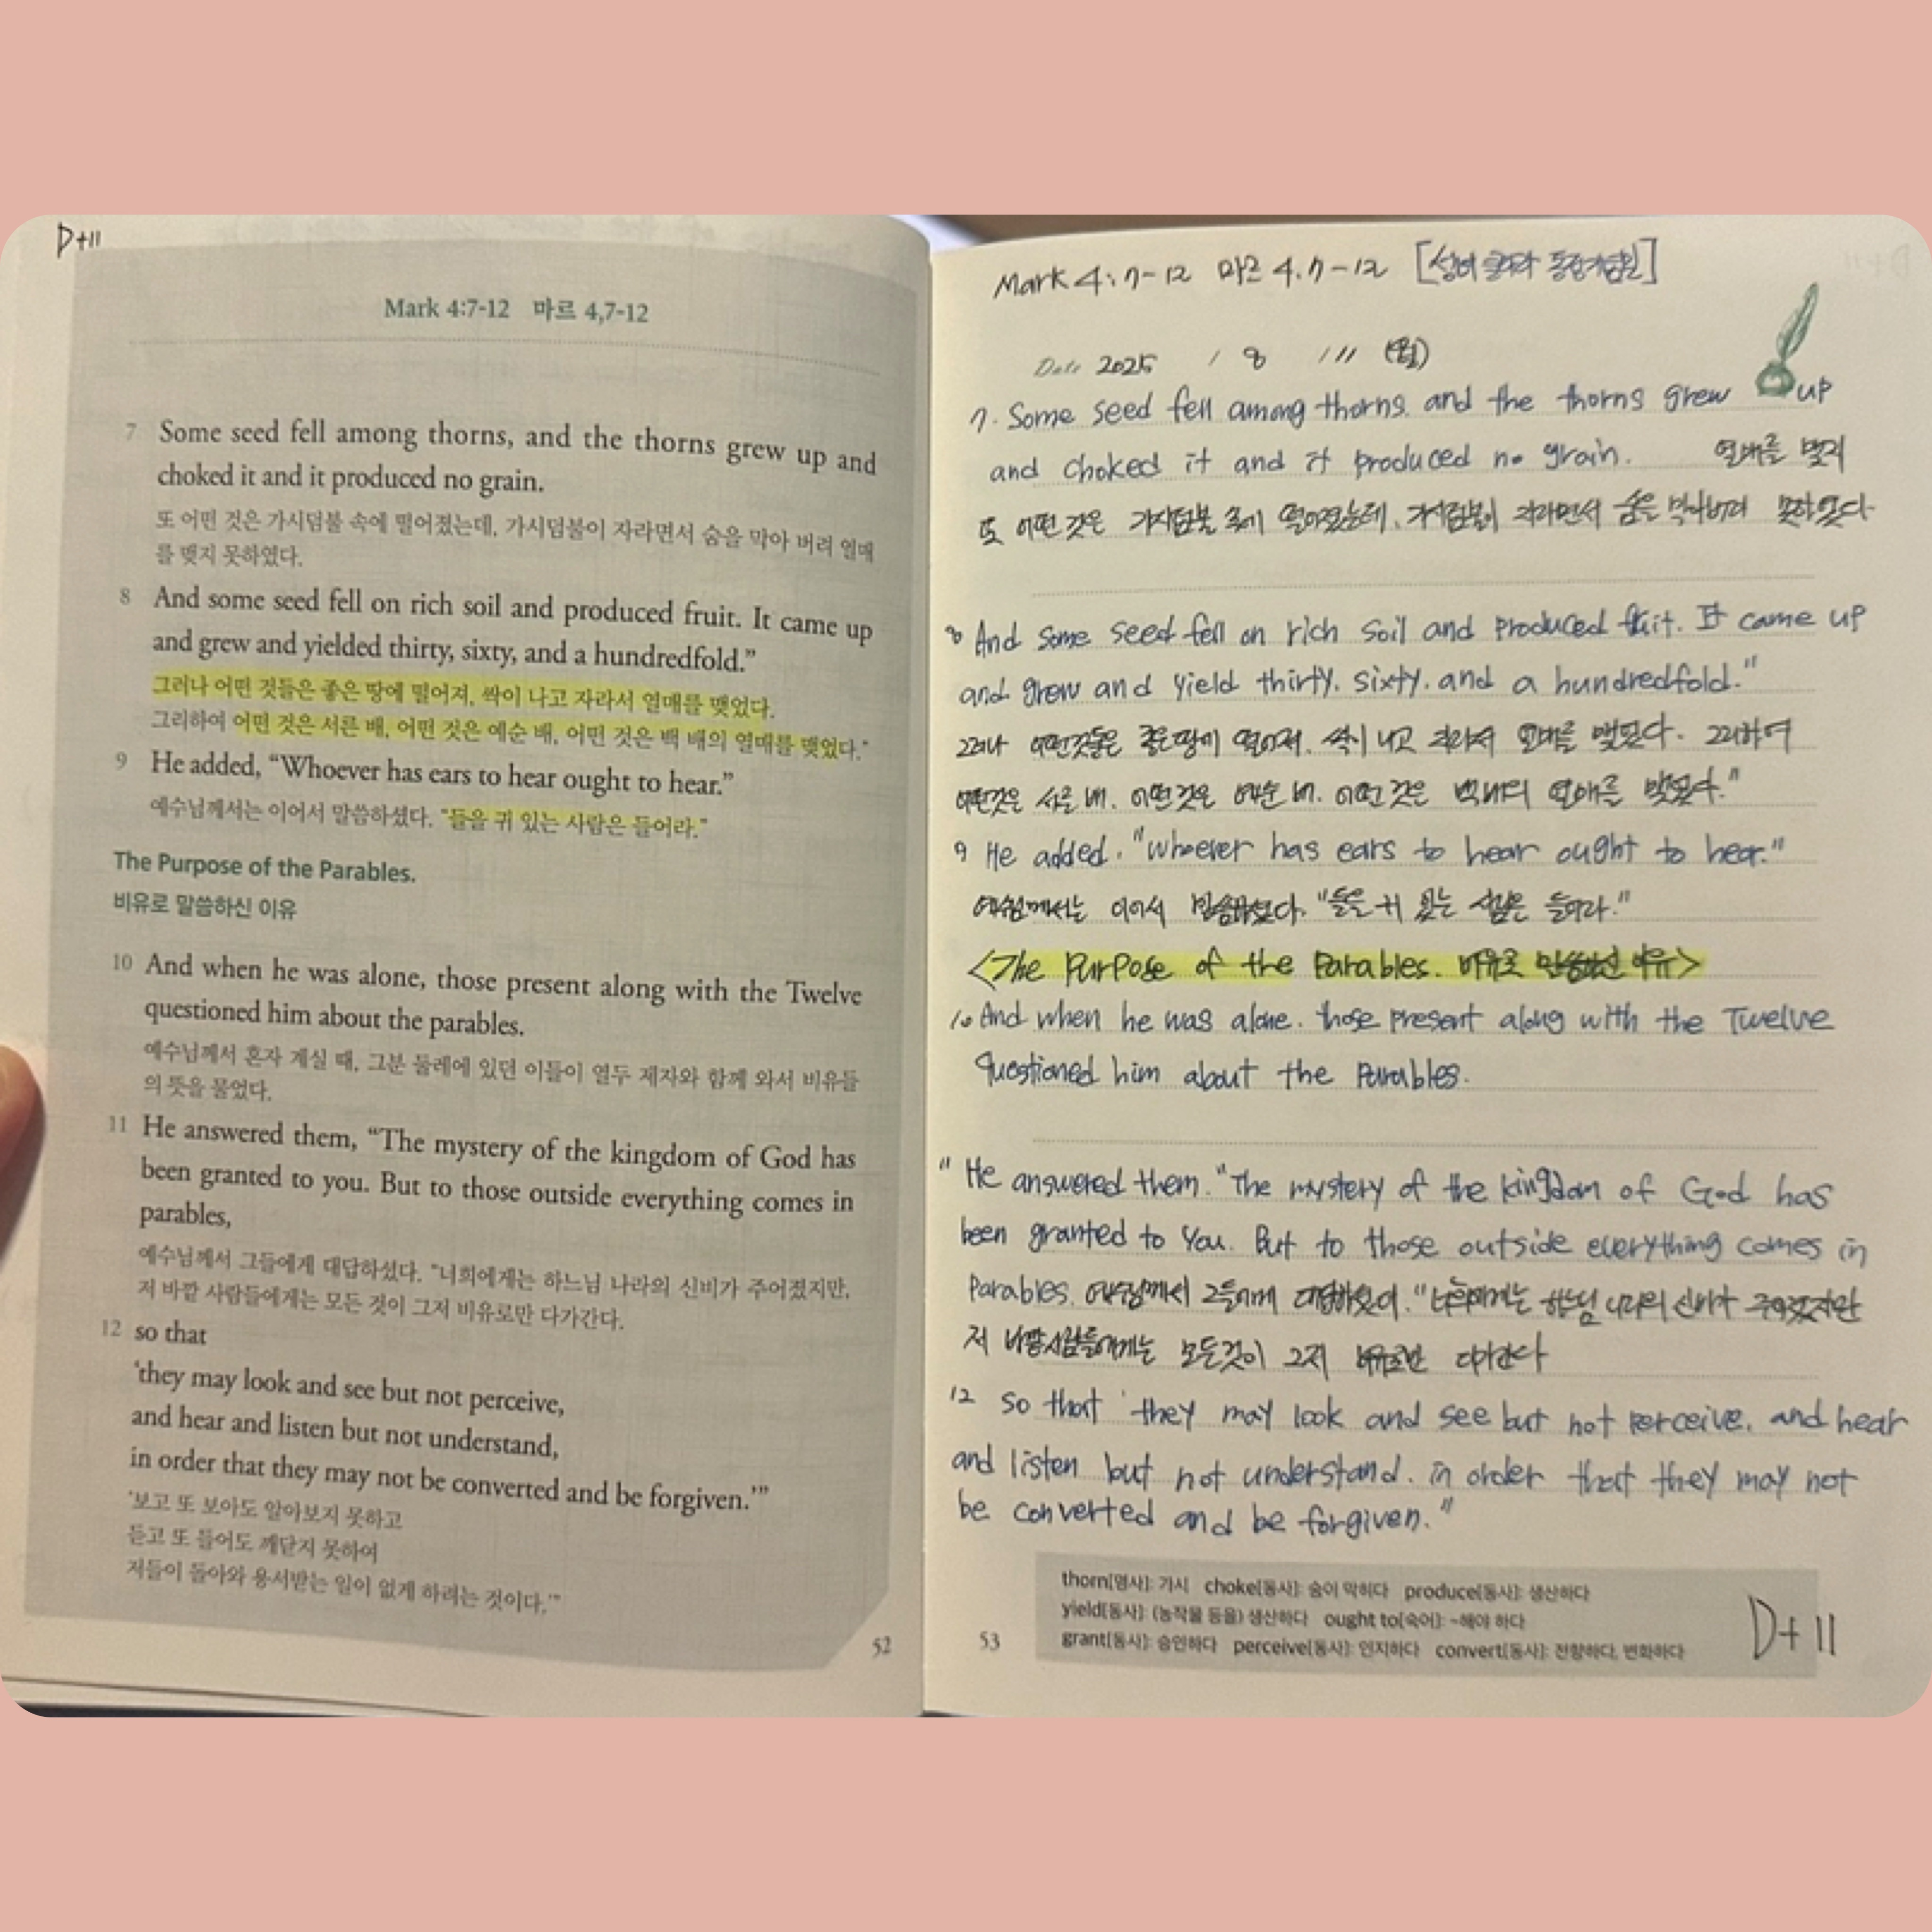 D+11
Mark 4:7-12 마르 4,7-12
7 Some seed fell among thorns, and the thorns grew up and
choked it and it produced no grain.
또 어떤 것은 가시덤불 속에 떨어졌는데, 가시덤불이 자라면서 숨을 막아 버려 열매
를 맺지 못하였다.
8 And some seed fell on rich soil and produced fruit. It came up
and grew and yielded thirty, sixty, and a hundredfold.”
그러나 어떤 것들은 좋은 땅에 떨어져, 싹이 나고 자라서 열매를 맺었다.
그리하여 어떤 것은 서른 배, 어떤 것은 예순 배, 어떤 것은 백 배의 열매를 맺었다.”
9 He added, “Whoever has ears to hear ought to hear.”
예수님께서는 이어서 말씀하셨다. “들을 귀 있는 사람은 들어라.”
The Purpose of the Parables.
비유로 말씀하신 이유
10 And when he was alone, those present along with the Twelve
questioned him about the parables.
예수님께서 혼자 계실 때, 그분 둘레에 있던 이들이 열두 제자와 함께 와서 비유들
의 뜻을 물었다.
11 He answered them, “The mystery of the kingdom of God has
been granted to you. But to those outside everything comes in
parables,
예수님께서 그들에게 대답하셨다. “너희에게는 하느님 나라의 신비가 주어졌지만,
저 바깥 사람들에게는 모든 것이 그저 비유로만 다가간다.
12 so that
‘they may look and see but not perceive,
and hear and listen but not understand,
in order that they may not be converted and be forgiven.’”
‘보고 또 보아도 알아보지 못하고
듣고 또 들어도 깨닫지 못하여
저들이 돌아와 용서받는 일이 없게 하려는 것이다.’”
52
Mark 4:7-12 마르 4.7-12 [성녀 글라라 동정
Date 2025 / 8 / 11 (월)
7. Some seed fell among thorns. and the thorns grew up
and choked it and it produced no grain. 열매를 맺지
또 어떤 것은 가시덤불 속에 떨어졌는데, 가시덤불이 자라면서 숨을 막아버려 못하였다
8 And some seed fell on rich soil and produced fruit. It came up
and grew and yield thirty. sixty. and a hundredfold."
그러나 어떤것들은 좋은땅에 떨어져. 싹이 나고 자라서 열매를 맺었다. 그리하여
어떤것은 서른 배. 어떤 것은 예순 배. 어떤 것은 백배의 열매를 맺었다."
9 He added. "Whoever has ears to hear ought to hear."
예수님께서는 이어서 말씀하셨다. "들을 귀 있는 사람은 들어라."
<The Purpose of the Parables. 비유로 말씀하신 이유>
10 And when he was alone. those present along with the Twelve
questioned him about the Parables.
11 He answered them. "The mystery of the kingdom of God has
been granted to you. But to those outside everything comes in
Parables. 예수님께서 그들에게 대답하셨어. "너희에게는 하느님 나라의 신비가 주어졌지만
저 바깥사람들에게는 모든것이 그저 비유로만 다가간다
12 so that 'they may look and see but not perceive. and hear
and listen but not understand. in order that they may not
be converted and be forgiven."
thorn[명사]: 가시 choke[동사]: 숨이 막히다 produce[동사]: 생산하다
yield[동사]: (농작물 등을) 생산하다 ought to[숙어]: ~해야 하다
grant[동사]: 승인하다 perceive[동사]: 인지하다 convert[동사]: 전향하다, 변화하다
D+11
53